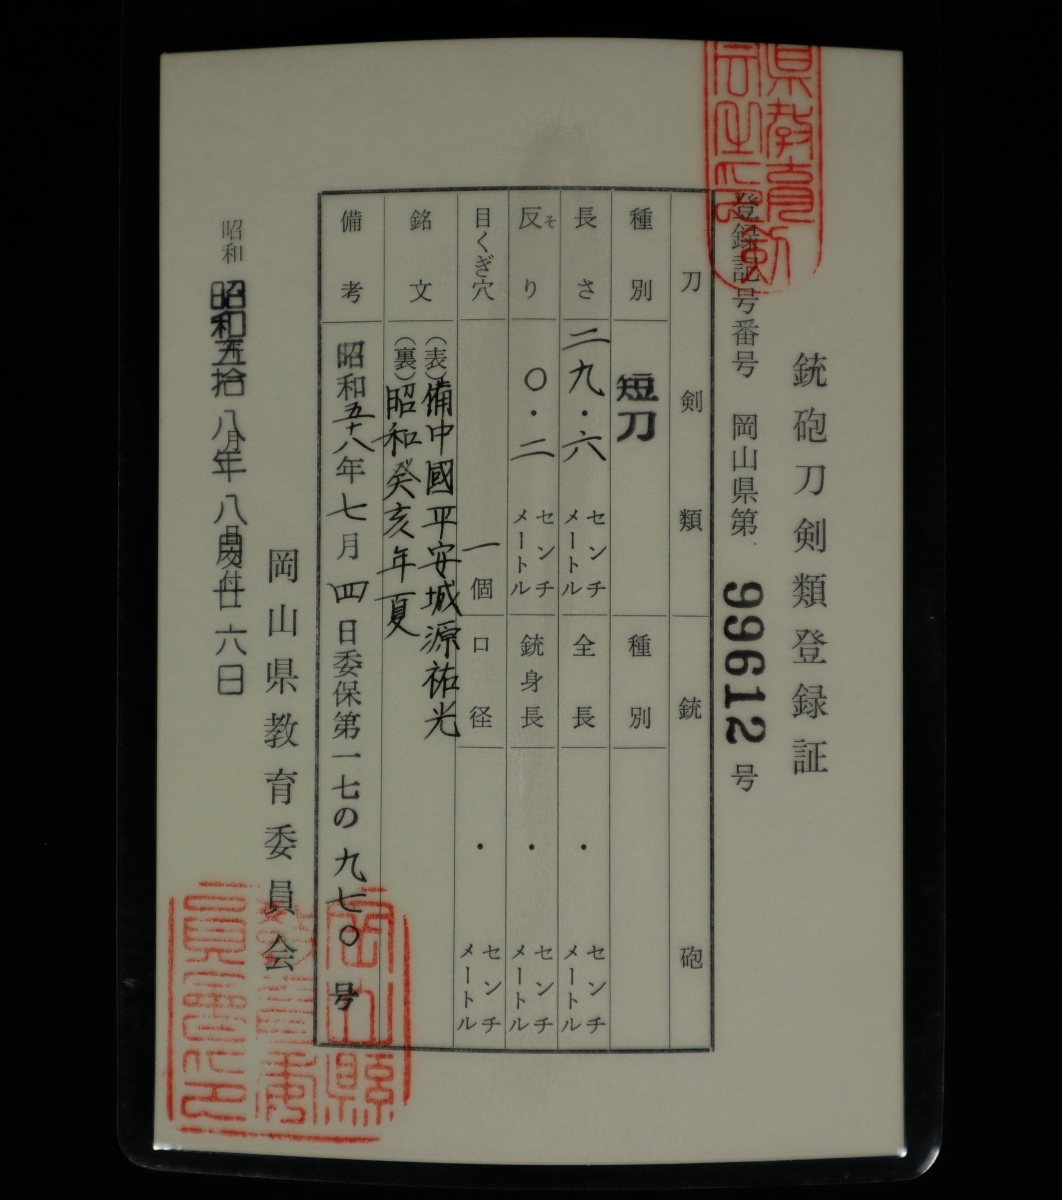 銃砲刀剣類登録証
登録記号番号 岡山県第 99612 号
刀剣類 銃砲
種別 短刀 種別
長さ 二九・六 センチメートル 全長 ・ センチメートル
反り そ 〇・二 センチメートル 銃身長 ・ センチメートル
目くぎ穴 一個 口径 ・ センチメートル
銘文 (表)備中國平安城源祐光
(裏)昭和癸亥年夏
備考 昭和五十八年七月四日委保第一七の九七〇号
岡山県教育委員会
昭和 昭和五拾八年八月廿六日
岡山縣
教育委
員會之印